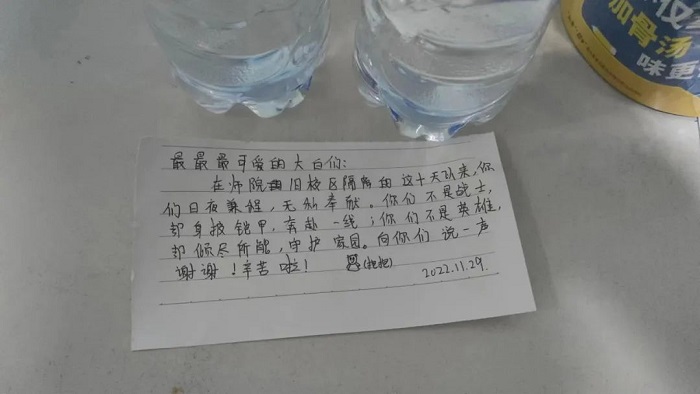 加骨汤
味更
最最最可爱的大白们:
在师院旧校区隔离的这十天以来,你
们日夜兼程,无私奉献。你们不是战士,
却身披铠甲,奔赴一线;你们不是英雄,
却倾尽所能,守护家园。向你们说一声
谢谢!辛苦啦!(抱抱)
2022.11.29.